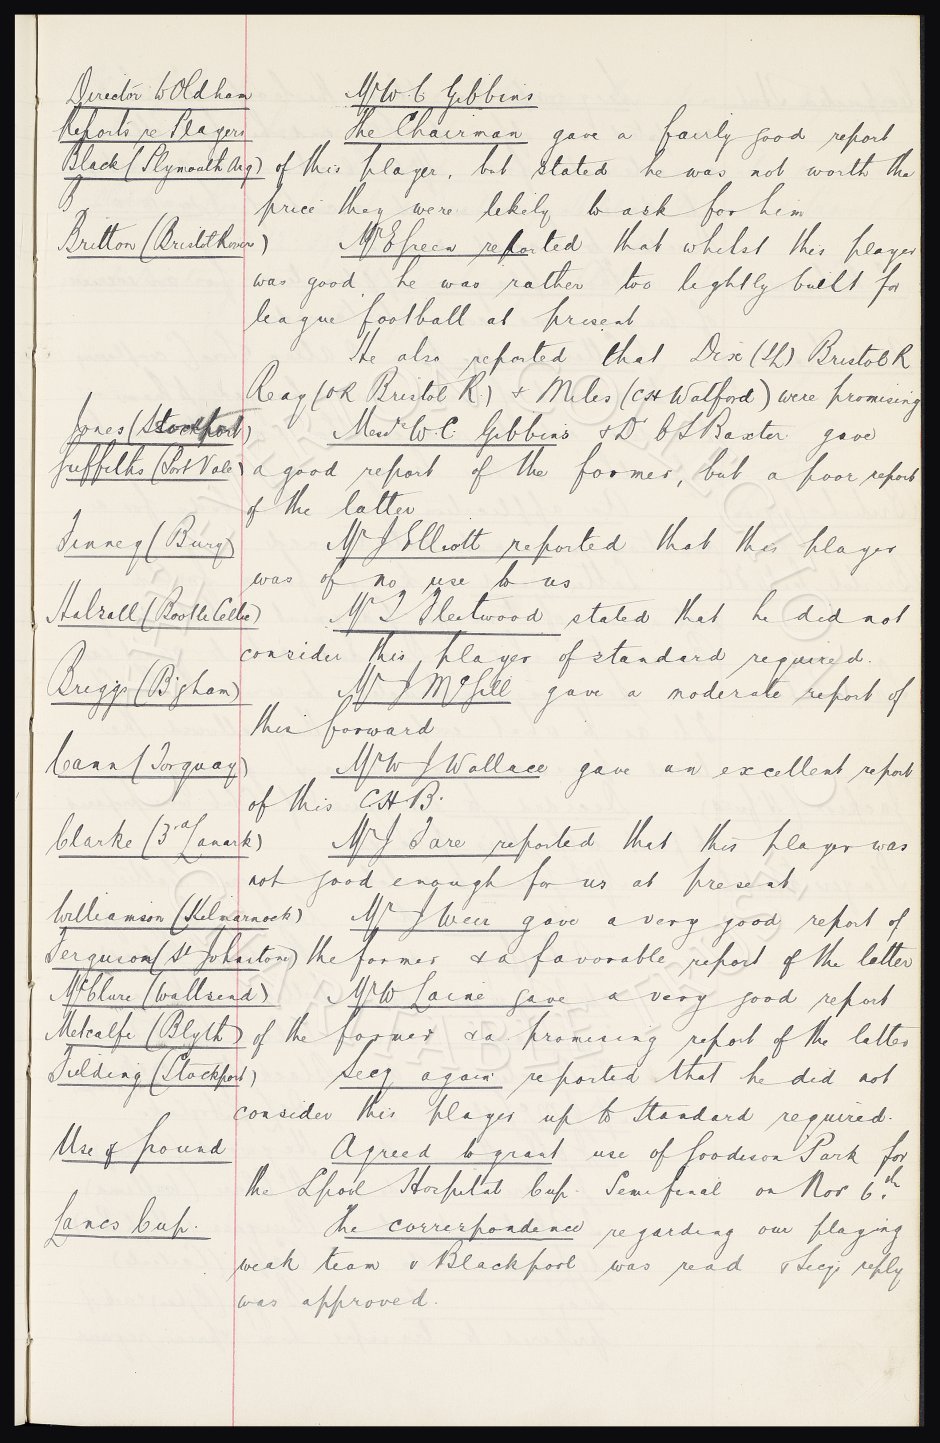 Director to Oldham Mr W. C. Gibbins
Reports re Players The Chairman gave a fairly good report
Black (Plymouth Arg) of this player, but stated he was not worth the
price they were likely to ask for him
Britton (Bristol Rovers) Mr E Green reported that whilst this player
was good he was rather too lightly built for
league football at present
He also reported that Dix (IL) Bristol R
Reay (OR Bristol R.) & Miles (CH Watford) were promising
Jones (Stockport) Messrs W. C. Gibbins & Dr C S Baxter gave
Griffiths (Port Vale) a good report of the former, but a poor report
of the latter
Finney (Bury) Mr J Elliott reported that this player
was of no use to us
Halsall (Bootle Celtic) Mr T Fleetwood stated that he did not
consider this player of standard required.
Briggs (Bigham) Mr J McGill gave a moderate report of
this forward
Cann (Torquay) Mr W J Wallace gave an excellent report
of this CHB.
Clarke (3rd Lanark) Mr J Tare reported that this player was
not good enough for us at present
Williamson (Kilmarnock) Mr J Weir gave a very good report of
Ferguson (St Johnstone) the former & a favorable report of the latter
McClure (Wallsend) Mr W Laine gave a very good report
Metcalfe (Blyth) of the former & a promising report of the latter
Filding (Stockport) Secy again reported that he did not
consider this player up to standard required.
Use of Ground Agreed to grant use of Goodison Park for
the Lpool Hospital Cup Semifinal on Nov 6th.
Lancs Cup. The correspondence regarding our playing
weak team v Blackpool was read & Secys reply
was approved.